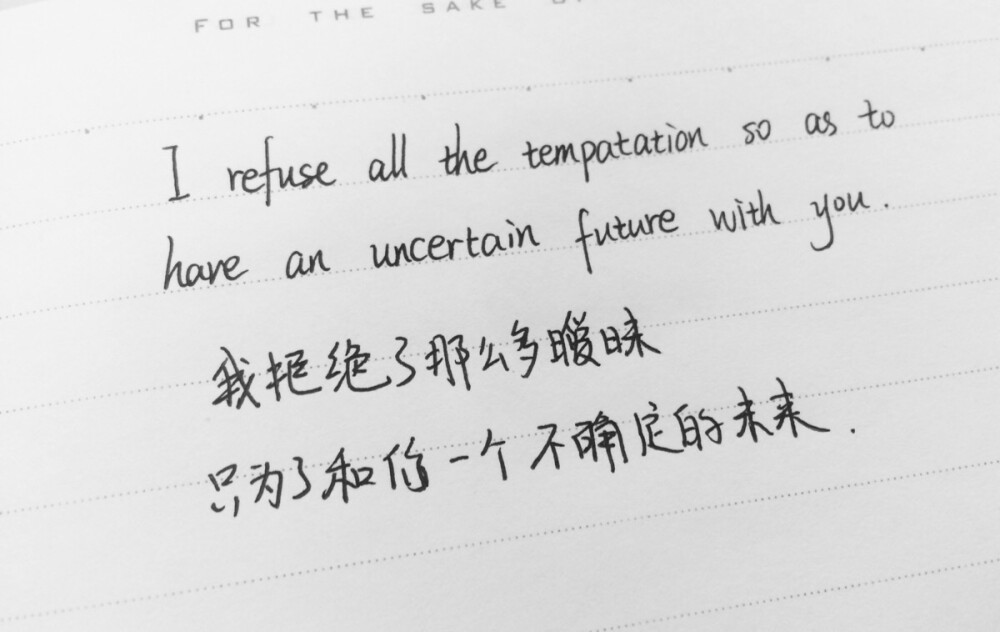 FOR THE SAKE
I refuse all the tempatation so as to
have an uncertain future with you.
我拒绝了那么多暧昧
只为了和你一个不确定的未来.